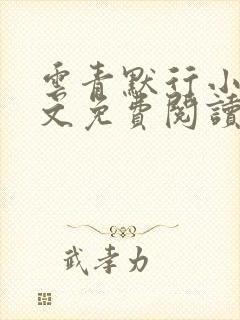 雲青默行小
文免費閱讀
武孝力